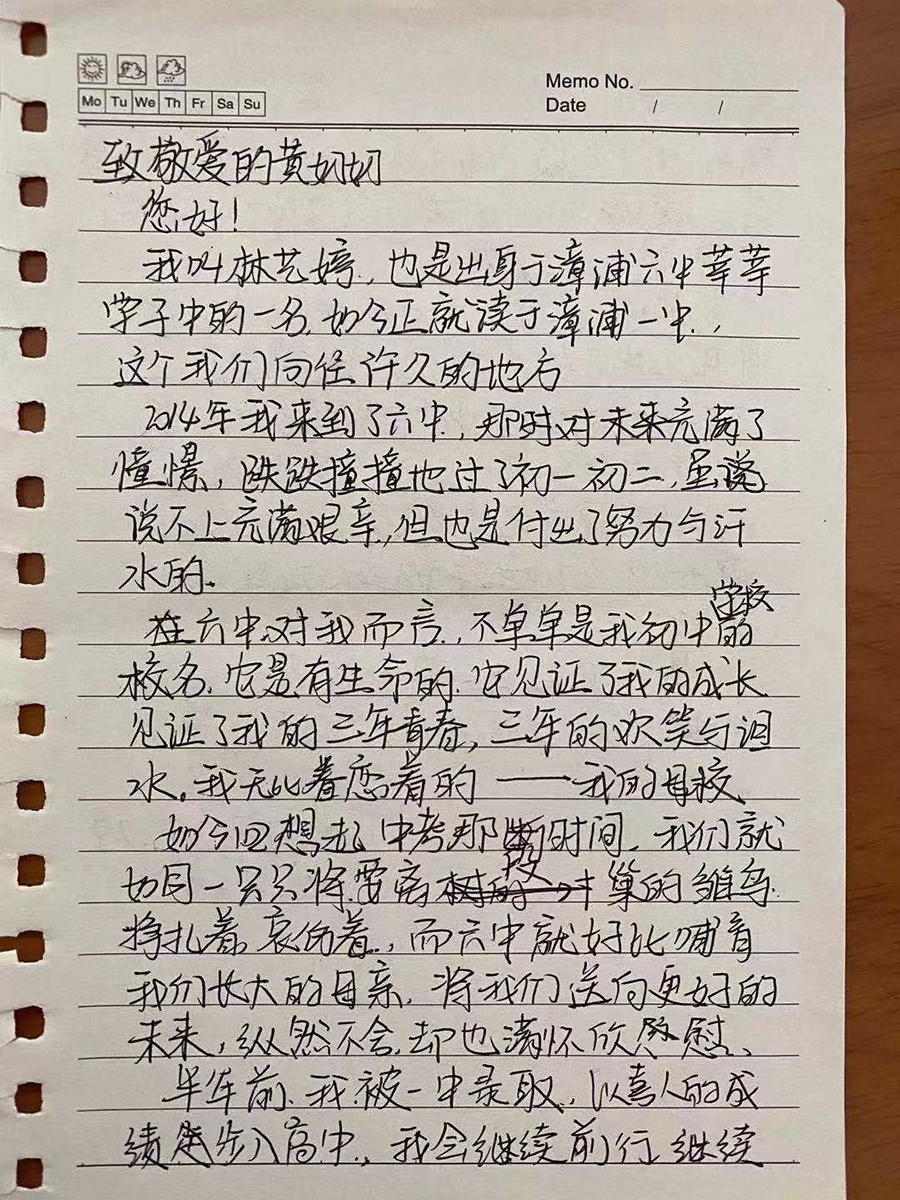 Memo No.
Mo Tu We Th Fr Sa Su
Date / /
致敬爱的黄奶奶
您好!
我叫林艺婷,也是出身于漳浦六中莘莘
学子中的一名,如今正就读于漳浦一中,
这个我们向往许久的地方
2014年我来到了六中,那时对未来充满了
憧憬,跌跌撞撞地过了初一初二,虽说
说不上充满艰辛,但也是付出了努力与汗
水的.
学校
在六中对我而言,不单单是我初中的
校名,它是有生命的,它见证了我的成长
见证了我的三年青春,三年的欢笑与泪
水。我无比眷恋着的——我的母校
如今回想起中考那段时间,我们就
如同一只只将要离巢的雏鸟
挣扎着,哀伤着,而六中就好比哺育
我们长大的母亲,将我们送向更好的
未来,纵然不舍,却也满怀欣慰、
半年前,我被一中录取,以喜人的成
绩步入高中,我会继续前行,继续